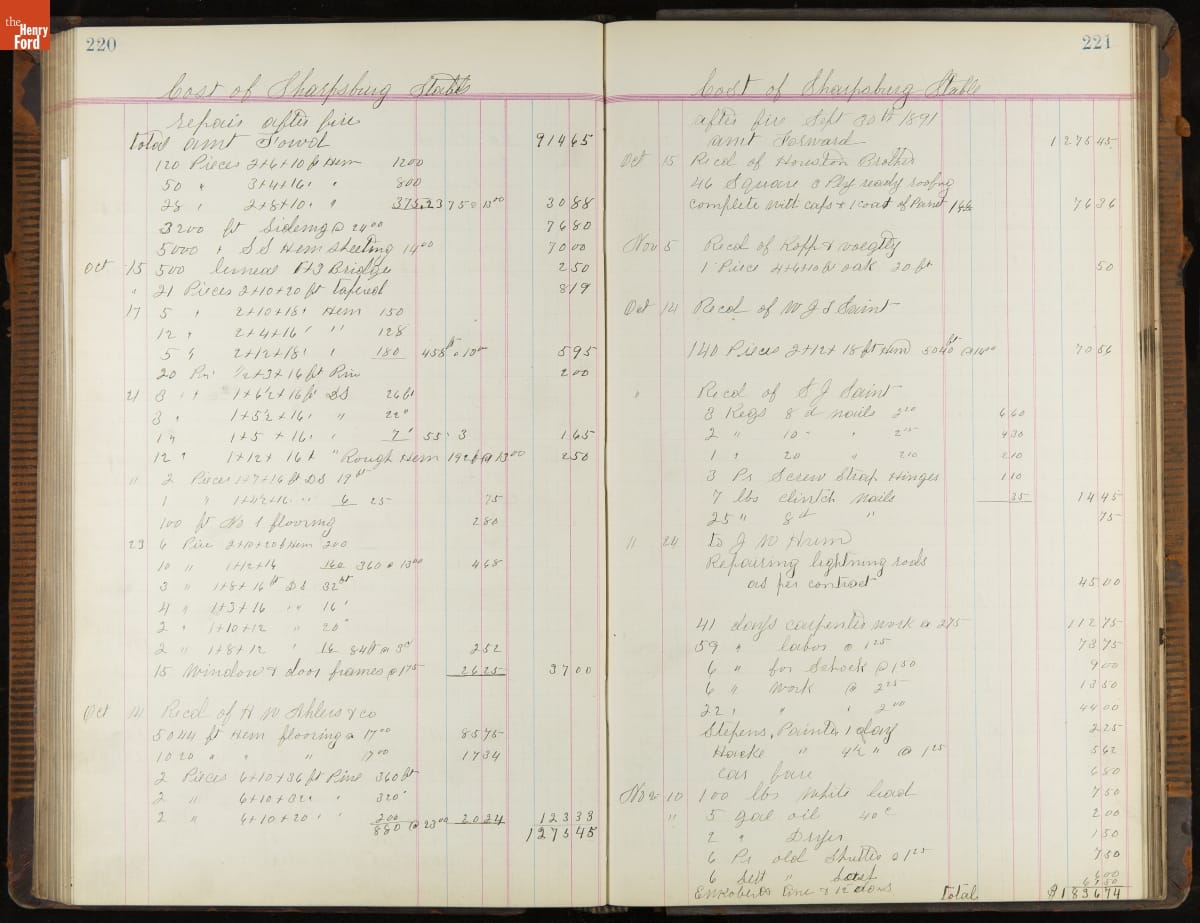 the Henry Ford
220
Cost of Sharpsburg Stable
repair after fire
total amt Forwd 914 65
120 Pieces 2+6+10 ft Hem 1200
50 " 3+4+16 " " 800
28 " 2+8+10 " " 375 2375 @ 13 00 30 88
3200 ft Siding @ 24 00 76 80
5000 " S S Hem sheeting 14 00 70 00
Oct 15 500 lineal 1+3 Bridge 2 50
" 21 Pieces 2+10+20 ft tapered 8 19
17 5 " 2+10+18 " Hem 150
12 " 2+4+16 " " 128
5 " 2+12+18 " " 180 458 ft @ 13 00 5 95
20 Pi 1/2+3+16 ft Pine 2 00
21 8 " " 1+6 1/2+16 ft DS 26 ft
3 " 1+5 1/2+16 " " 22 "
1 " 1+5+16 " " 7 ' 55 " 3 1 65
12 " 1+12+16 ft " Rough Hem 192 ft @ 13 00 2 50
" 2 Pieces 1+7+16 ft DS 19 ft
1 " 1+4 1/2+16 " " 6 25 75
100 ft No 1 flooring 2 80
23 6 Pice 2+10+20 ft Hem 200
10 " 1+12+16 160 360 @ 13 00 4 68
3 " 1+8+16 ft DS 32 ft
4 " 1+3+16 " " 16 '
2 " 1+10+12 " 20 "
2 " 1+8+12 " 16 84 ft @ 3 c 2 52
15 Window & door frames @ 1 75 26 25 37 00
Oct 14 Recd of H W Ahlers & co
5044 ft Hem flooring @ 17 00 85 75
1020 " " " 17 00 17 34
2 Pieces 6+10+36 ft Pine 360 ft
2 " 6+10+32 " " 320 '
2 " 6+10+20 " " 200
880 @ 23 00 20 24 123 33
1275 45
221
Cost of Sharpsburg Stable
after fire Sept 30th 1891
amt Forward 1275 45
Oct 15 Recd of Houston Brother
46 Square 3 Ply ready roofing
complete with caps & 1 coat of Paint 1 66 76 36
Nov 5 Recd of Kopp & voegtly
1 Piece 4+6+10 ft oak 20 ft 50
Oct 14 Recd of W J S Saint
140 Pieces 2+12+18 ft Hem 5040 ft @ 14 00 70 56
" Recd of S J Saint
3 Kegs 8 d nails 2 20 6 60
2 " 10 " " 2 15 4 30
1 " 20 " 2 10 2 10
3 Pr Screw Strap Hinges 1 10
7 lbs clintch nails 35 14 45
25 " 8 d " 75
" 24 to J W Hum
Repairing lightning rods
as per contract 45 00
41 days carpenter work @ 2 75 112 75
59 " labor @ 1 25 73 75
6 " for Schock @ 1 50 9 00
6 " Work @ 2 25 13 50
22 " " " 2 00 44 00
Stepens, Painter 1 day 2 25
Hacke " 4 1/2 " @ 1 25 5 62
car fare 6 80
Nov 10 100 lbs White lead 7 50
" 5 gal oil 40 c 2 00
2 " Dryer 1 50
6 Pr old Shutter @ 1 25 7 50
6 Sett " 6 00
total $1836 74